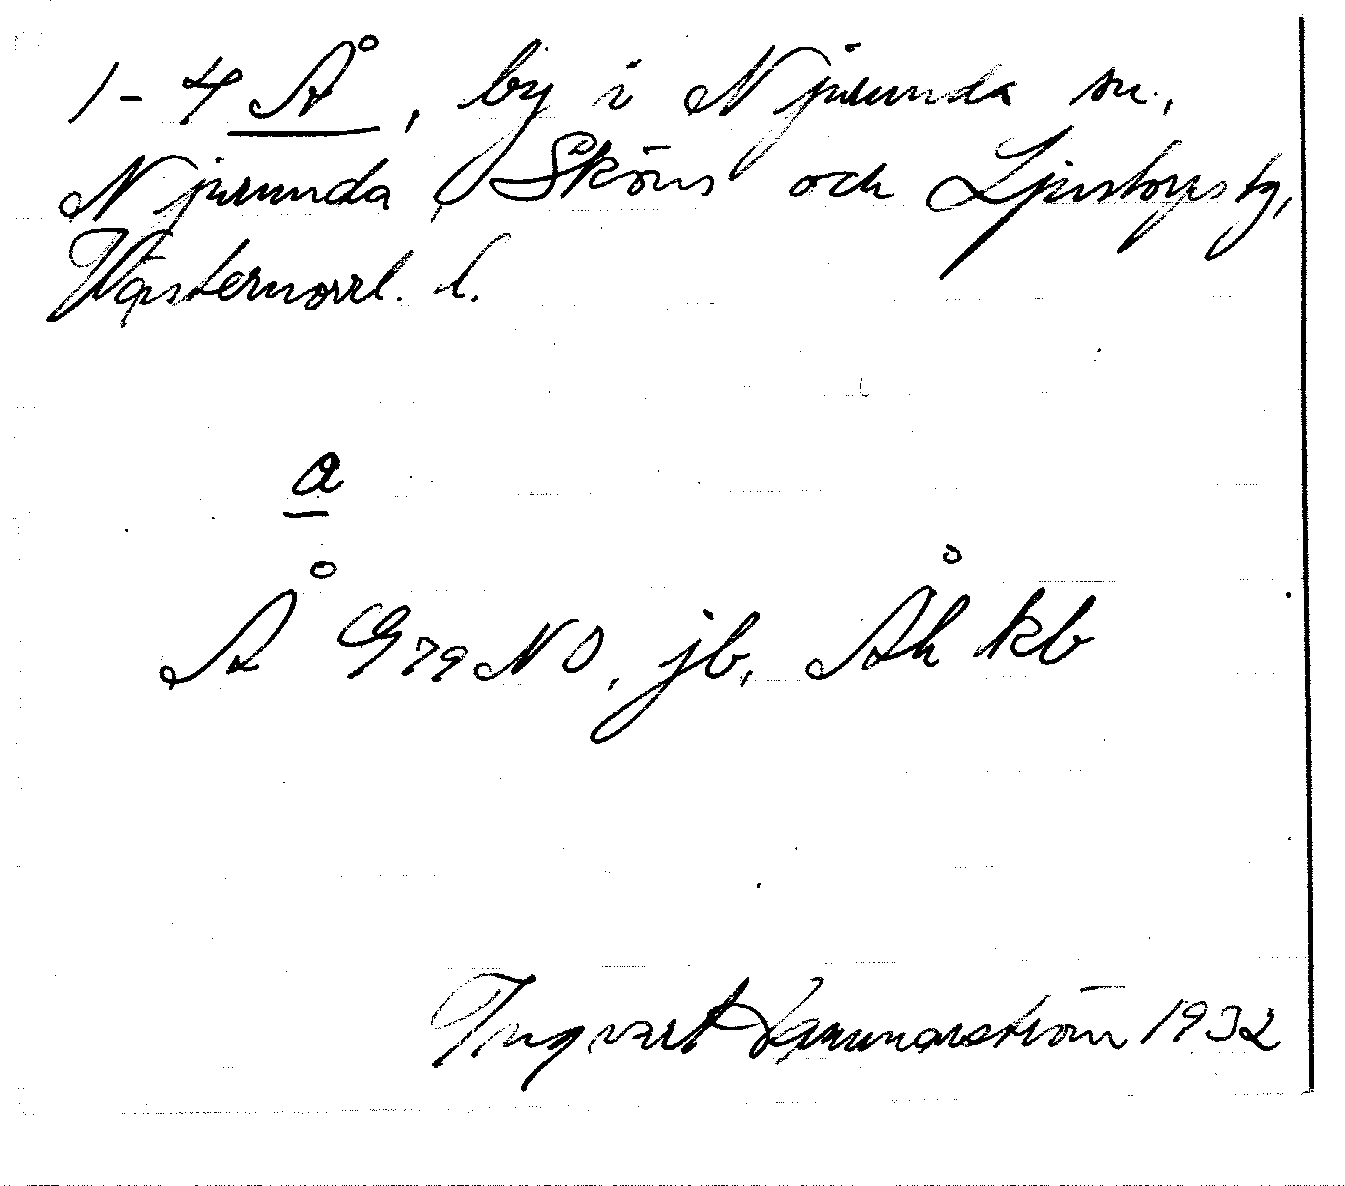 1-4 Å, by i Njurunda sn.,
Njurunda, Sköns och Ljustorps tg,
Västernorrl. l.
a
Å G79NO, jb, Åh kb
Ingvart Hammarström 1932